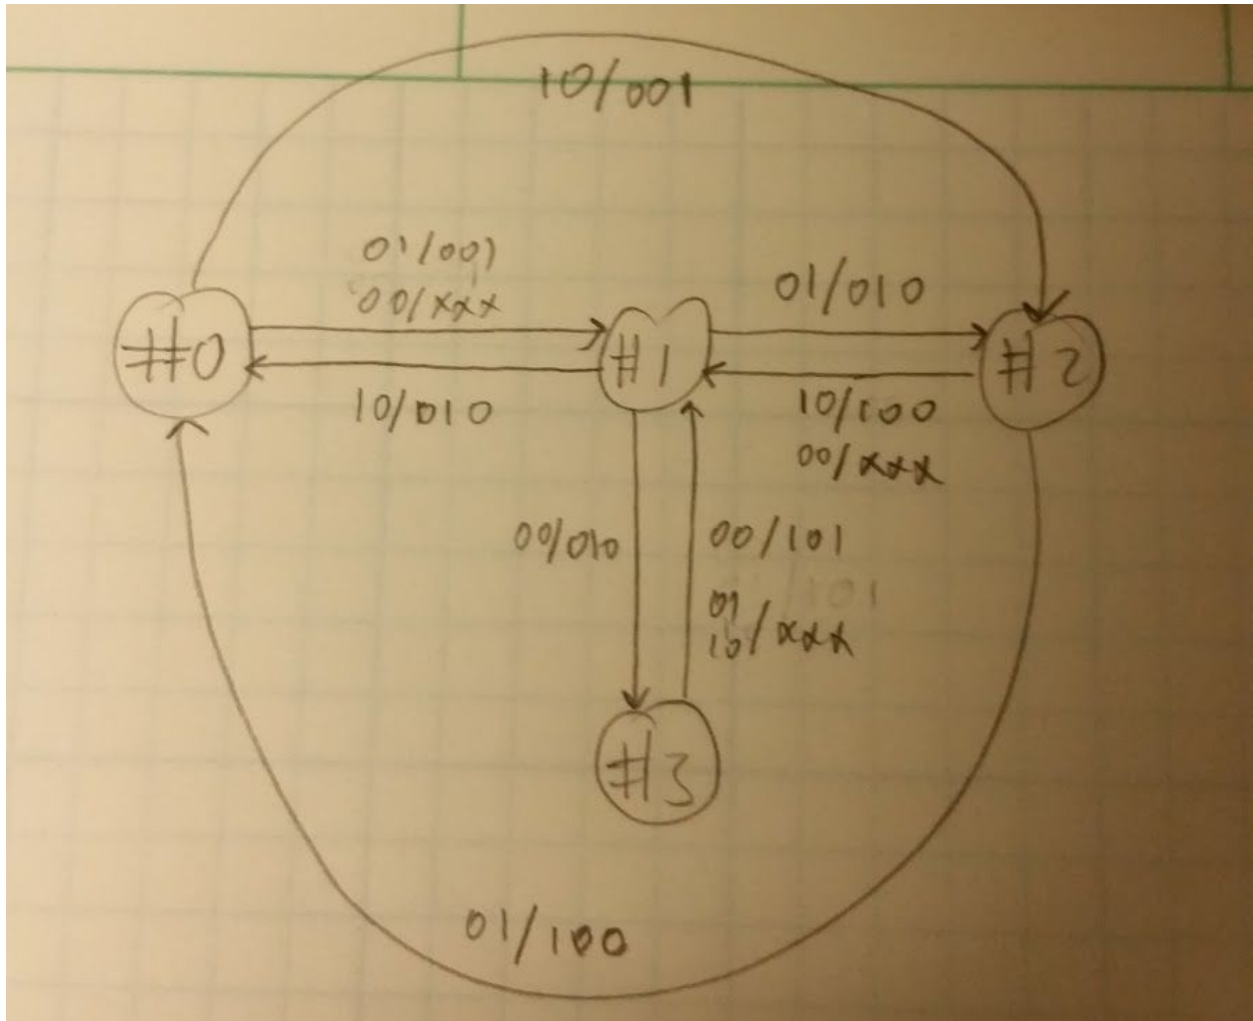 10/001
01/001
00/xxx
01/010
#0
#1
#2
10/010
10/100
00/xxx
00/010
00/101
01
10/xxx
#3
01/100